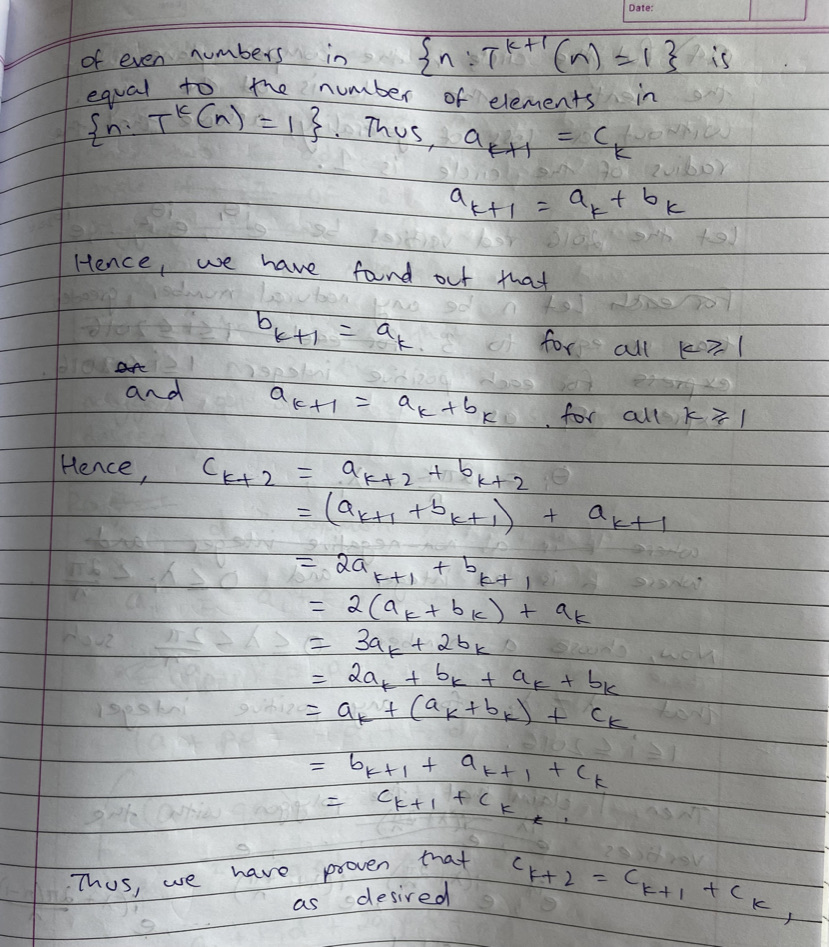 Date:
of even numbers in {n : T^{k+1}(n) = 1} is
equal to the number of elements in
{n: T^k(n) = 1}. Thus, a_{k+1} = c_k
a_{k+1} = a_k + b_k
Hence, we have found out that
b_{k+1} = a_k. for all k ≥ 1
and a_{k+1} = a_k + b_k . for all k ≥ 1
Hence, c_{k+2} = a_{k+2} + b_{k+2}
= (a_{k+1} + b_{k+1}) + a_{k+1}
= 2a_{k+1} + b_{k+1}
= 2(a_k + b_k) + a_k
= 3a_k + 2b_k
= 2a_k + b_k + a_k + b_k
= a_k + (a_k + b_k) + c_k
= b_{k+1} + a_{k+1} + c_k
= c_{k+1} + c_k .
Thus, we have proven that c_{k+2} = c_{k+1} + c_k,
as desired